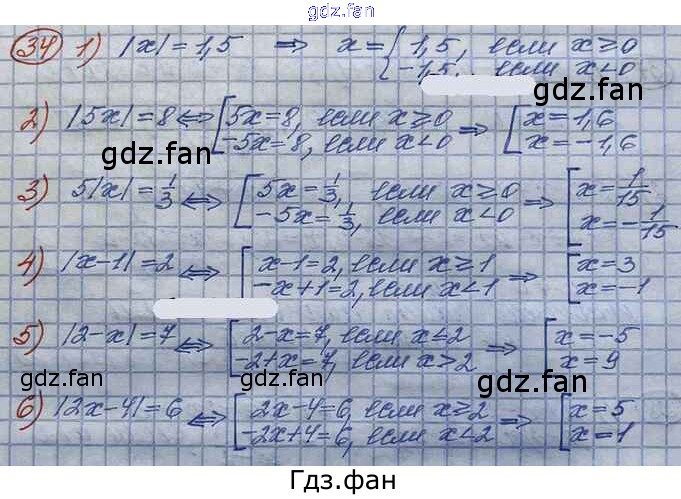 gdz.fan
34 1) |x| = 1,5 ⇒ x = { 1,5, если x ≥ 0
-1,5, если x < 0
gdz.fan
2) |5x| = 8 ⇔ [ 5x = 8, если x ≥ 0 ⇒ [ x = 1,6
-5x = 8, если x < 0 x = -1,6
gdz.fan
gdz.fan
3) 5|x| = 1/3 ⇔ [ 5x = 1/3, если x ≥ 0 ⇒ [ x = 1/15
-5x = 1/3, если x < 0 x = -1/15
4) |x-1| = 2 ⇔ [ x-1 = 2, если x ≥ 1 ⇒ [ x = 3
-x+1 = 2, если x < 1 x = -1
5) |2-x| = 7 ⇔ [ 2-x = 7, если x ≤ 2 ⇒ [ x = -5
-2+x = 7, если x > 2 x = 9
gdz.fan gdz.fan gdz.fan
6) |2x-4| = 6 ⇔ [ 2x-4 = 6, если x ≥ 2 ⇒ [ x = 5
-2x+4 = 6, если x < 2 x = 1
Гдз.фан